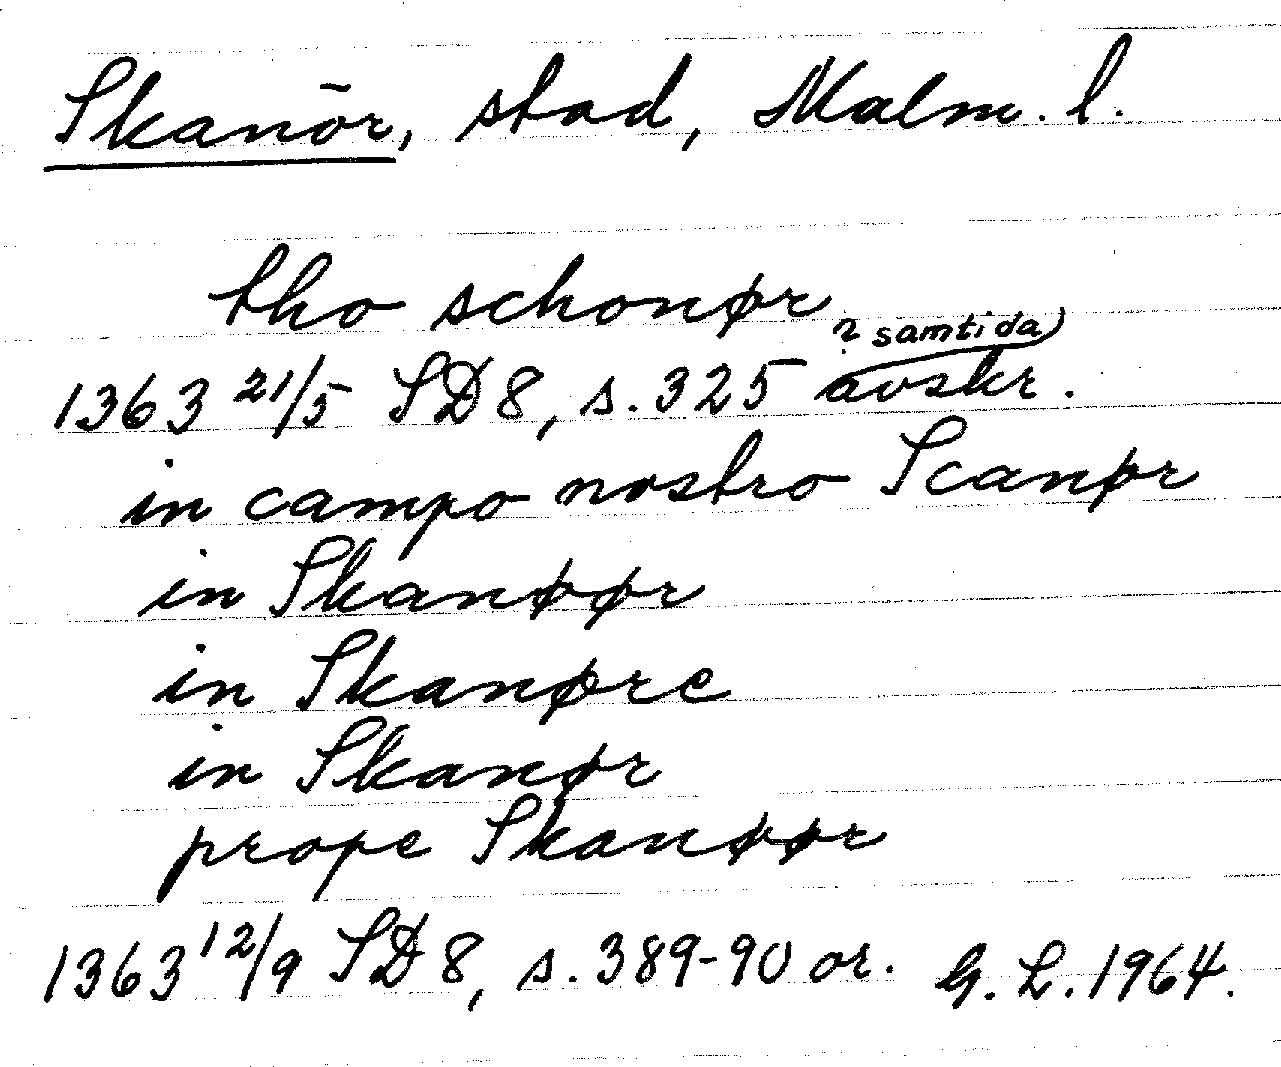 Skanör, stad, Malm. l.
tho schonør
1363 21/5 SD 8, s. 325 2 samtida avskr.
in campo nostro Scanør
in Skanøør
in Skanøre
in Skanør
prope Skanøør
1363 12/9 SD 8, s. 389-90 or. G. L. 1964.